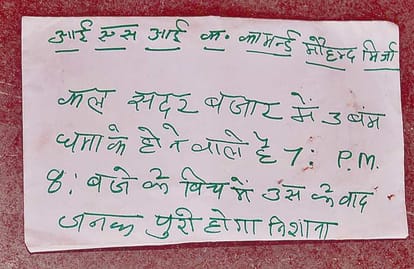 आई एस आई क. कामर्न्ड मौहन्द मिर्जा
कल सदर बजार में 3 बंम
धमाके होने वाले है 7: P.M.
8: बजे के विच में उस के वाद
जनक पुरी होगा निशाना